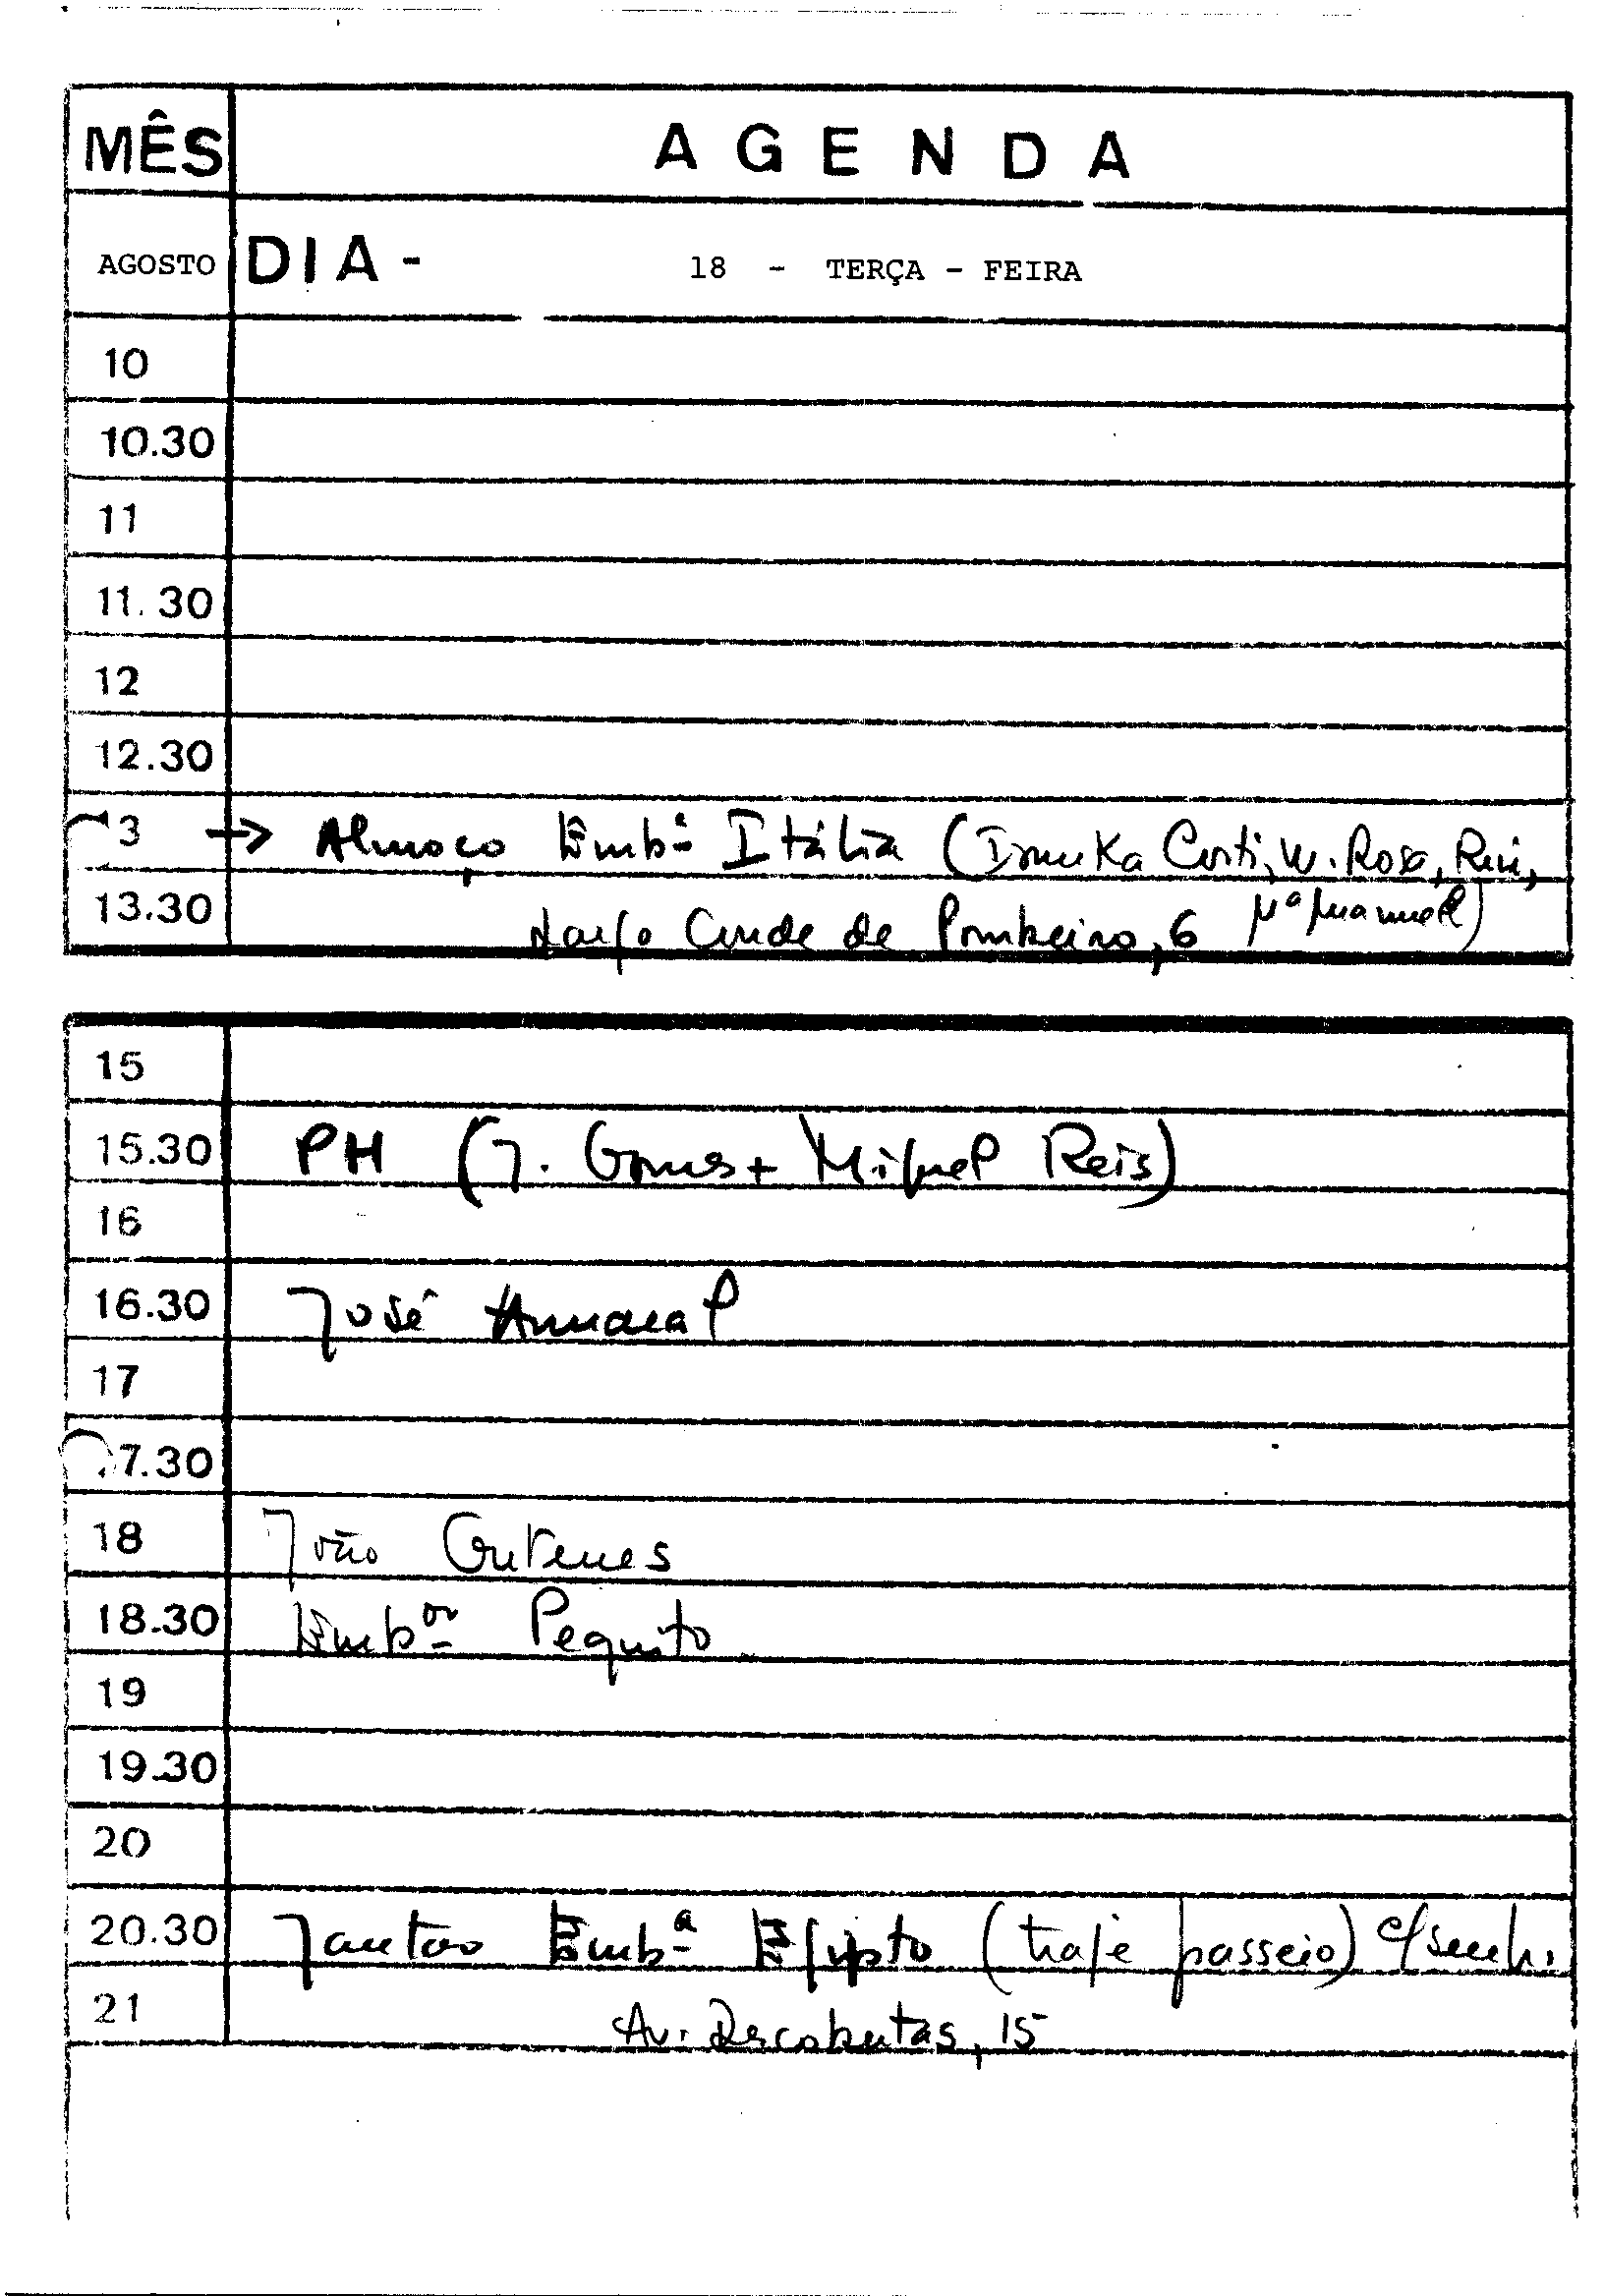 MÊS AGENDA
AGOSTO DIA - 18 - TERÇA - FEIRA
10
10.30
11
11.30
12
12.30
13 → Almoço Emb.ª Itália (Irmuka Corti, M. Rosa, Rui,
13.30 Largo Conde de Pombeiro, 6 Mª Manuel)
15
15.30 PH (J. Gomes + Miguel Reis)
16
16.30 José Amaral
17
17.30
18 João Gutenes
18.30 Emb.or Pequito
19
19.30
20
20.30 Jantar Emb.ª Egipto (traje passeio) c/senh.
21 Av. Descobertas, 15